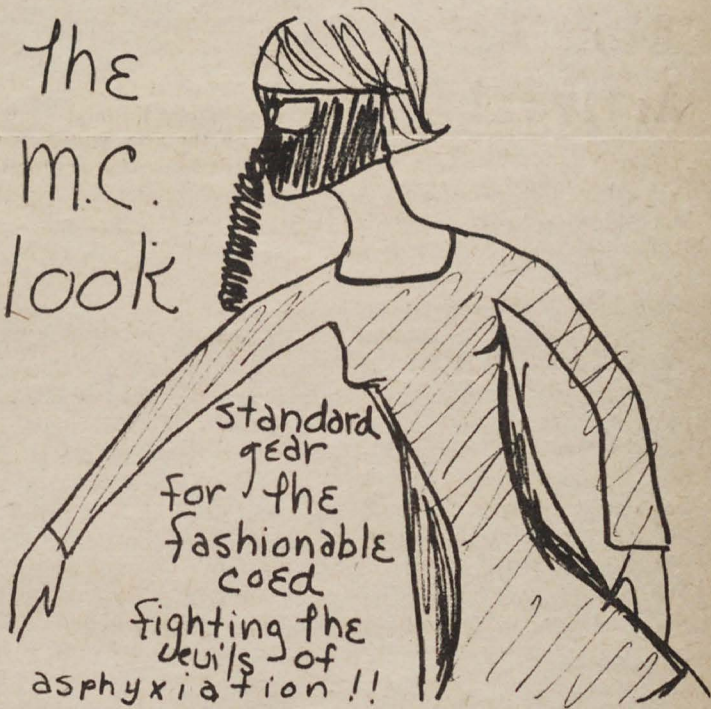 The
M.C.
look
standard
gear
for the
fashionable
coed
fighting the
devils of
asphyxiation !!